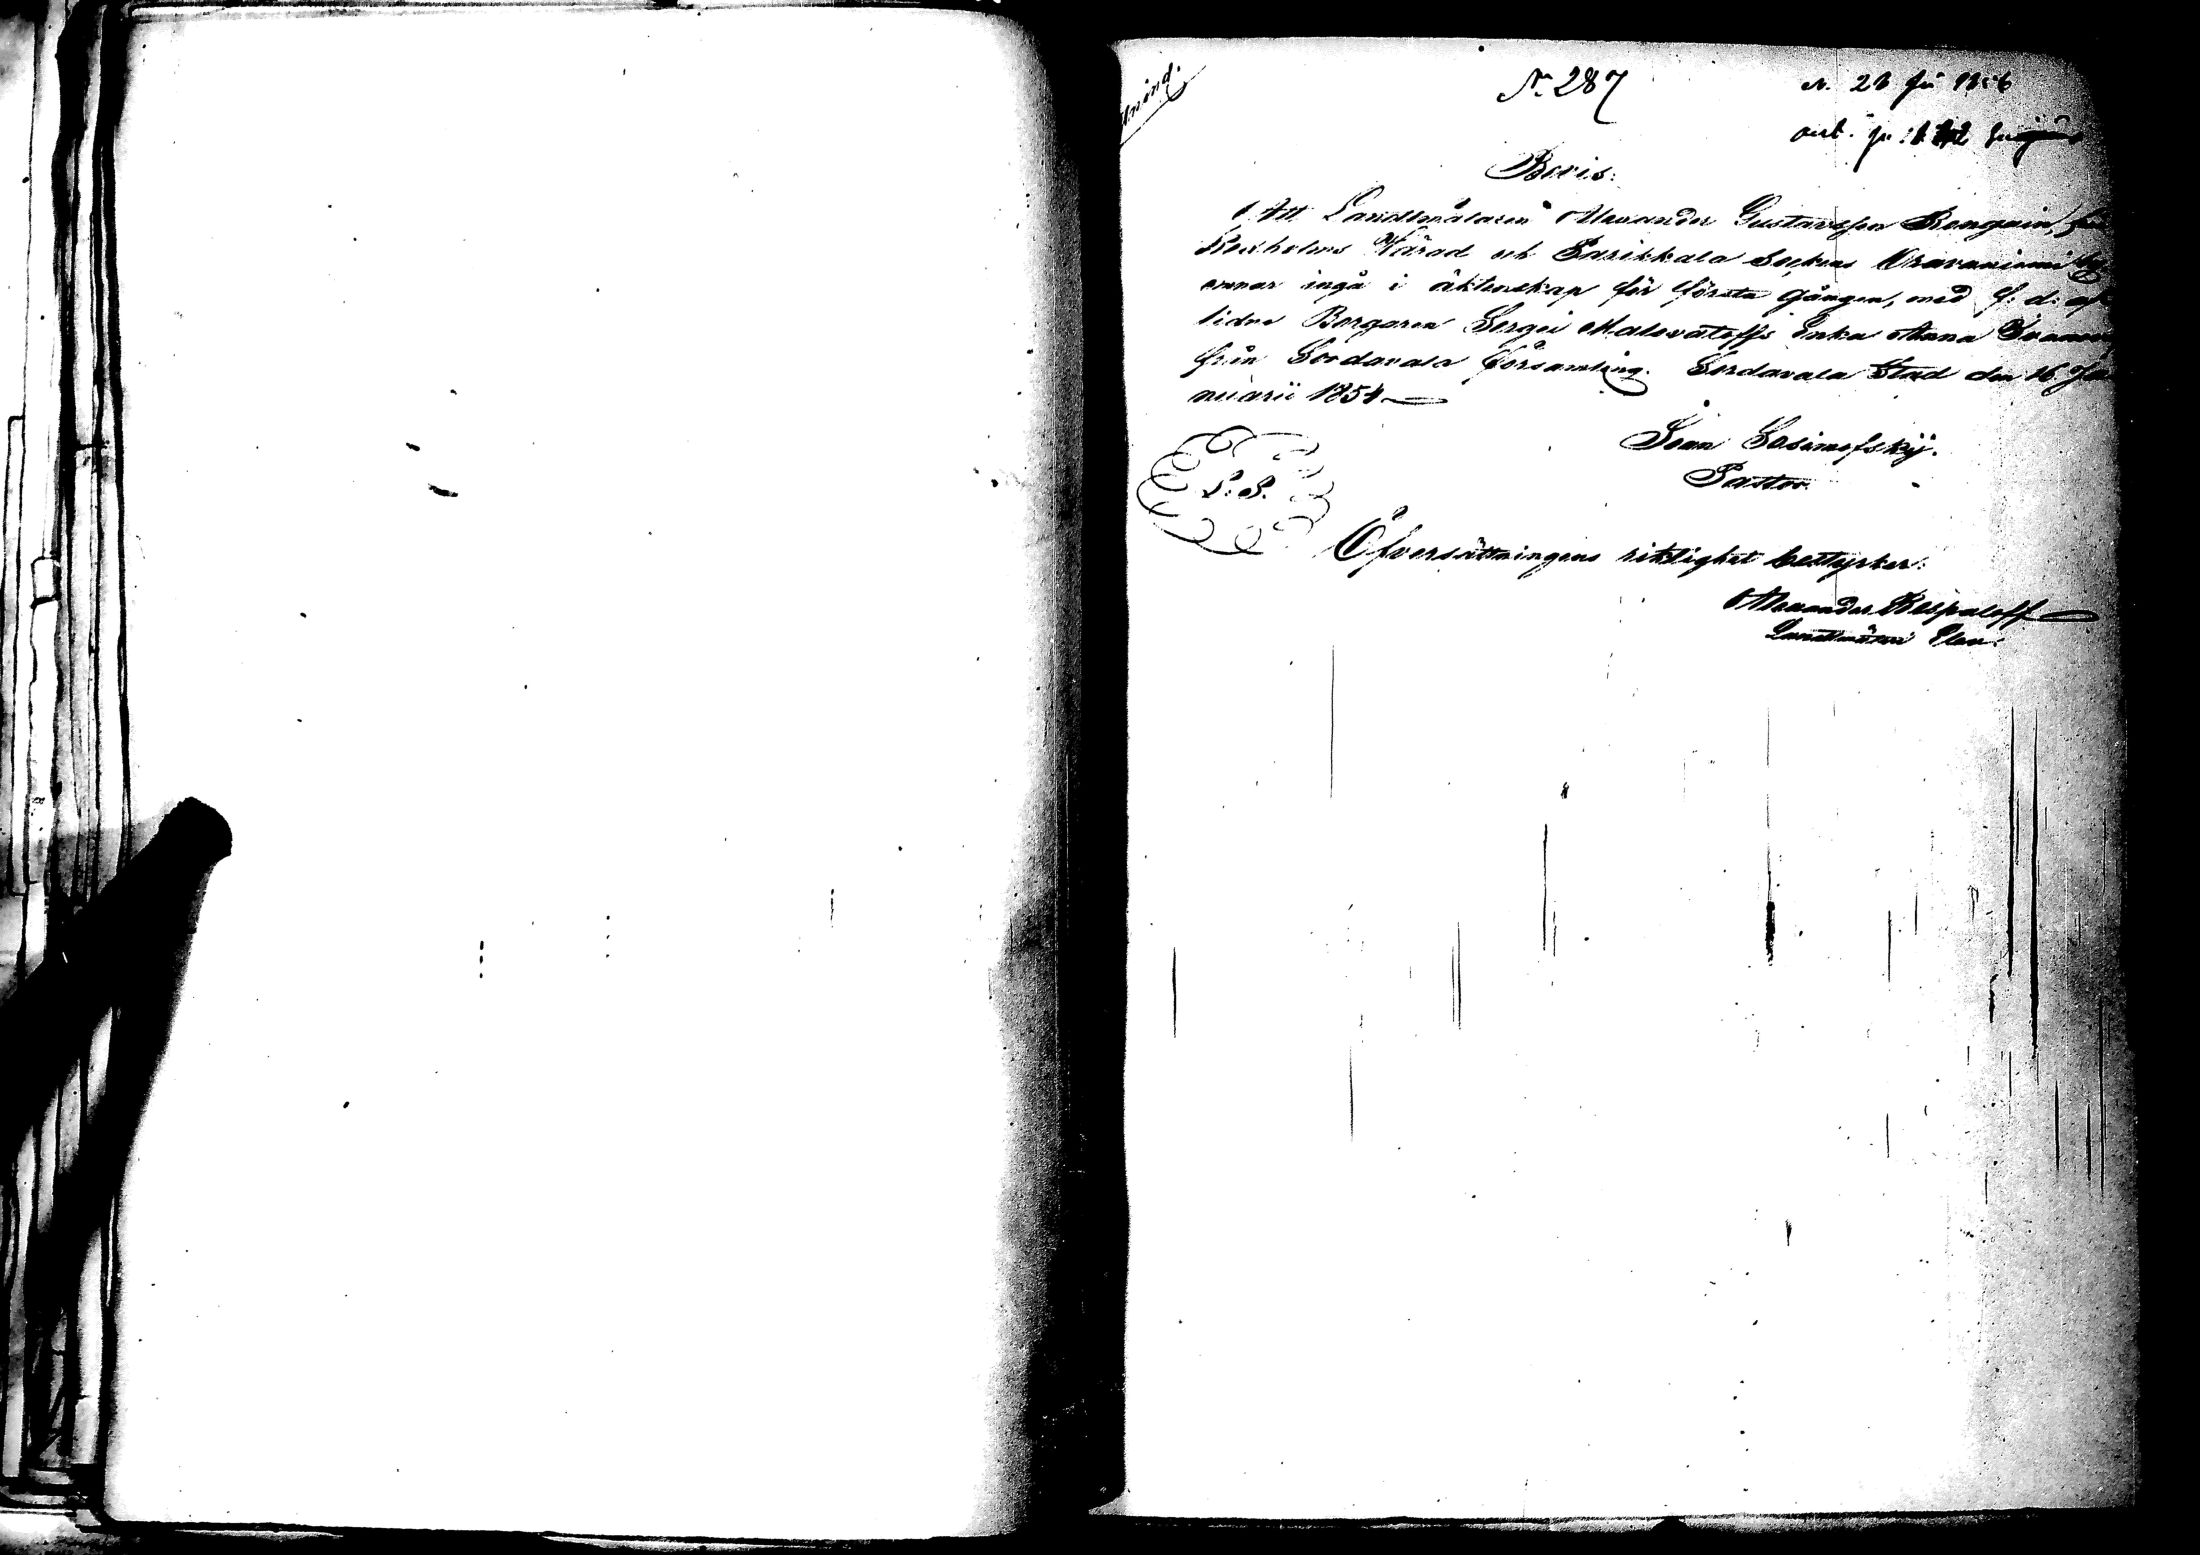 N. 287
Bevis.
Att Landtmätaren Alexander Gustavsson Rongain, från
Kexholms Härad och Parikkala Sockens
ämnar ingå i äktenskap för första gången, med f: d: af-
lidne Borgaren Sergei Malevateffs Enka Anna
från Sordavala Församling. Sordavala Stad den 16 Ja-
nuarii 1854
Ivan Sosimofskij.
Pastor.
L. S.
Öfversättningens riktighet bestyrker:
Alexander Bespaloff
Landtmäteri Elev.